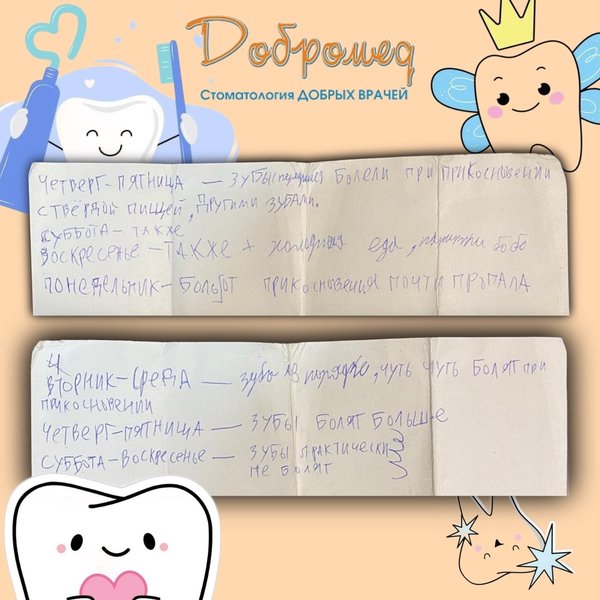 Добромед
Стоматология ДОБРЫХ ВРАЧЕЙ
ЧЕТВЕРГ-ПЯТНИЦА — ЗУБЫ БОЛЕЛИ ПРИ ПРИКОСНОВЕНИИ
С ТВЁРДОЙ ПИЩЕЙ, ДРУГИМИ ЗУБАМИ.
СУББОТА- ТАКЖЕ
ВОСКРЕСЕНЬЕ-ТАКЖЕ + холодная еда,
ПОНЕДЕЛЬНИК- ПРИКОСНОВЕНИЯ ПОЧТИ ПРОПАЛА
ВТОРНИК-СРЕДА — зубы в порядке, ЧУТЬ ЧУТЬ БОЛЯТ ПРИ
ПРИКОСНОВЕНИИ
ЧЕТВЕРГ-ПЯТНИЦА — ЗУБЫ БОЛЯТ БОЛЬШЕ
СУББОТА-ВОСКРЕСЕНЬЕ — ЗУБЫ ПРАКТИЧЕСКИ
НЕ БОЛЯТ